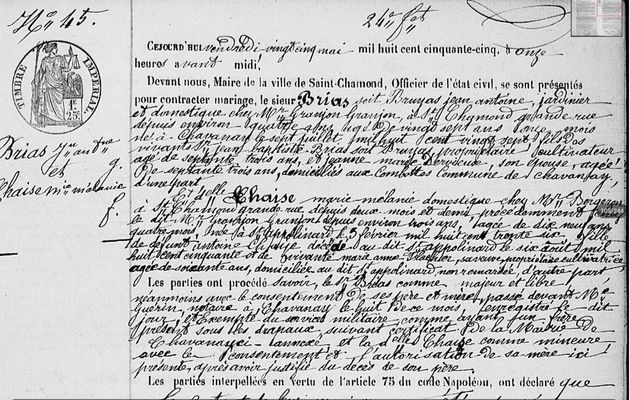 No 45.
24e ft
TIMBRE IMPERIAL
1F. 25c
Brias Jn antne
&
Chaise mie melanie
f.
CEJOURD'HUI vendredi vingtcinq mai mil huit cent cinquante-cinq, à onze
heures avant midi,
Devant nous, Maire de la ville de Saint-Chamond, Officier de l'état civil, se sont présentés
pour contracter mariage, le sieur Brias soit Brujas jean antoine, jardinier
et domestique chez Mr Granjon Granjon, à St Chamond grande rue
depuis environ quatre ans, agé de vingt sept ans onze mois
né à Chavanay le sept juillet mil huit cent vingt sept fils des
vivants sr jean baptiste Brias soit Brujas, propriétaire cultivateur
agé de septante trois ans, et jeanne marie Dervieux son épouse, agée
de septante trois ans, domiciliés aux Combettes Commune de Chavanay,
d'une part
Et delle Chaise marie melanie domestique chez Mr Bergeron
à St Chamond grande rue depuis deux mois et demi précédemment chez
le dit Mr Granjon Granjon depuis environ trois ans, agée de dix neuf ans
quatre mois, née à St appolinard le 5 février mil huit cent trente six fille
de defunt antoine Chaise décédé au dit St appolinard le six août mil
huit cent cinquante et de vivante marie anne sa veuve, propriétaire cultivatrice
agée de soixante ans, domiciliée au dit St appolinard non remariée, d'autre part
Les parties ont procédé savoir, le sr Brias comme majeur et libre
néanmoins avec le consentement de ses père et mère, passé devant Me
Guerin, notaire à Chavanay le huit de ce mois, enregistré le dit
jour, et exempté du service militaire, comme ayant un frère
présent sous les drapaux, suivant certificat de la Mairie de
Chavanay ci-annexé, et la delle Chaise comme mineure,
avec le consentement et l'autorisation de sa mère ici
présente, après avoir justifié du décès de son père.
Les parties interpellées en vertu de l'article 75 du code Napoléon, ont déclaré que